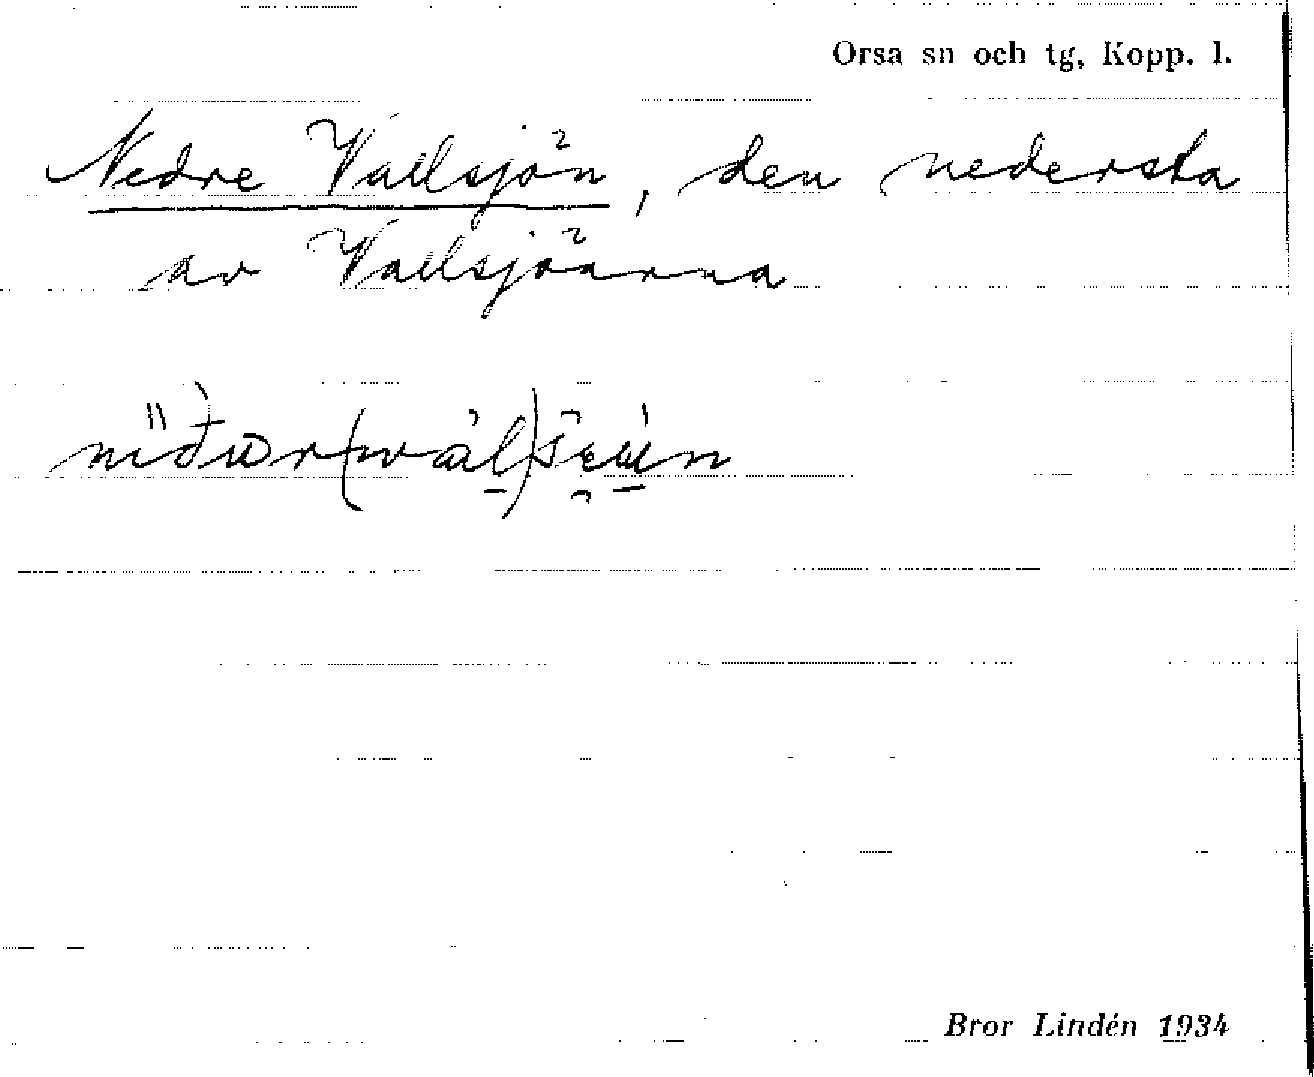 Orsa sn och tg, Kopp. l.
Nedre Vallsjön, den nedersta
av Vallsjöarna
Bror Lindén 1934